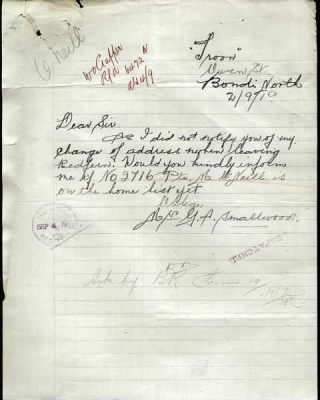 O'Neill
"Troon"
Owen St.
Bondi North
2/9/19
Dear Sir.
As I did not notify you of my
change of address when leaving
Redfern. Would you kindly inform
me if No 2716. Pte. M. O'Neill. is
on the home list yet
Oblige.
Mrs G. A. Smallwood.
SEP 4
Ack by